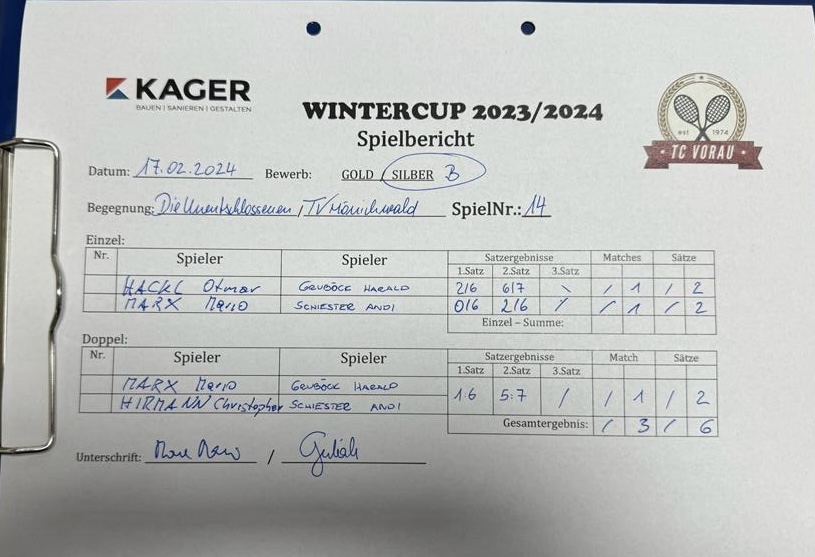 KAGER
BAUEN | SANIEREN | GESTALTEN
WINTERCUP 2023/2024
Spielbericht
est 1974
TC VORAU
Datum: 17.02.2024 Bewerb: GOLD / SILBER B
Begegnung: Die Unentschlossenen / TV Mönichwald SpielNr.: 14
Einzel:
Nr. Spieler Spieler Satzergebnisse Matches Sätze
1.Satz 2.Satz 3.Satz
HACKL Otmar GRUBÖCK HARALD 2/6 6/7 \ / 1 / 2
MARX Mario SCHIESTER ANDI 0/6 2/6 / / 1 / 2
Einzel – Summe:
Doppel:
Nr. Spieler Spieler Satzergebnisse Match Sätze
1.Satz 2.Satz 3.Satz
MARX Mario GRUBÖCK HARALD
HIRMANN Christopher SCHIESTER ANDI 1:6 5:7 / / 1 / 2
Gesamtergebnis: / 3 / 6
Unterschrift: /